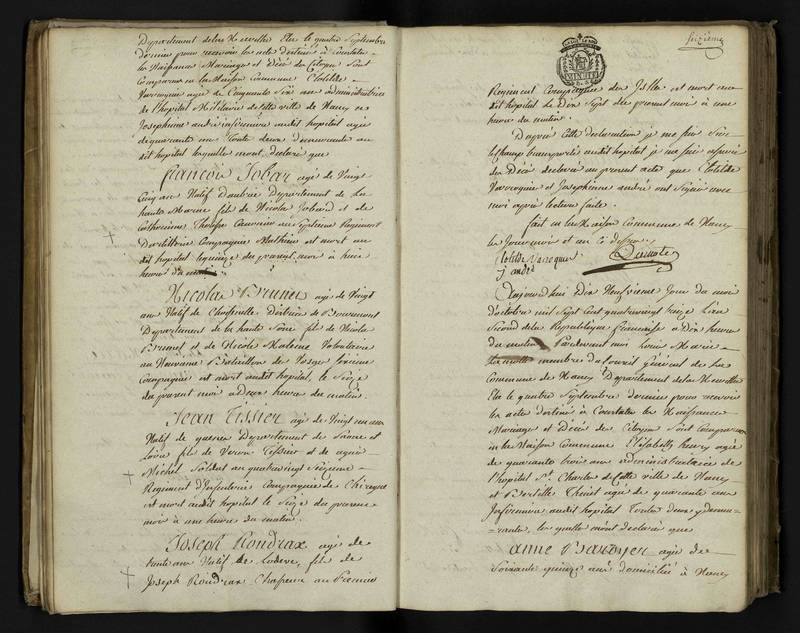 Département de la Meurthe Elu le quatre Septembre
dernier pour recevoir les acte destiné à Constater
les Naissance Mariage et Décé des Citoyen Sont
Comparue en la Maison Commune Clotilde
Varocquie agée de Cinquante Six ans administratrice
de l'hopital Militaire de cette ville de Nancy et
Josephinne andré infirmiere audit hopital agée
de quarante un toute deux demeurante au
dit hopital lesquelle mont déclaré que
François Jobar agé de Vingt
Cinq ans Natif Daubrie Département de La
haute Marne fils de Nicolas Jobard et de
Catherinne Canonier au Septieme Régiment
Dartillerie Compagnie Mathieu est mort au
dit hopital le quinze du présent mois à huit
heure du matin
Nicolas Brunet agé de Vingt
ans Natif de district de Bourmont
Département de la haute Sone fils de Nicolas
Brunet et de Nicole Volontaire
au Neuvieme Bataillon de Vosges troisieme
Compagnie est mort audit hopital, le Seize
du présent mois à deux heure du matin.
Jean Tissier agé de Vingt un ans
Natif de Département de Saone et
Loire fils de Tissier et de
Michel Soldat au quatrevingt Seizieme
Régiment D'infanterie Compagnie de
est mort audit hopital le Seize du présent
mois à une heure du matin.
Joseph Roudrax agé de
trente ans Natif de Lodeve, fils de
Joseph Roudrax Chasseur au Premier
Seizieme
Régiment Compagnie de est mort au
dit hopital le Dix Sept du présent mois à une
heure du matin.
D'après Cette Déclaration je me suis Sur
le champ transporté audit hopital, je me suis assuré
du Décé déclaré au présent acte que Clotilde
Varocquie et Josephinne andré ont Signé avec
moi après lecture faite.
fait en la Maison Commune de Nancy
les Jour mois et an Ci dessus.
Clotilde Varocquier
J andré
Aujourd'hui Dix Neufvieme Jour du mois
d'octobre mil Sept Cent quatrevingt treize L'an
Second de la République française à Dix heure
du matin Pardevant moi Louis Marie
membre du Conseil Général de La
Commune de Nancy Département de la Meurthe
Elu le quatre Septembre dernier pour recevoir
les acte destiné à Constater les Naissance
Mariage et Décé des Citoyen Sont Comparue
en la Maison Commune Elisabeth henry agée
de quarante trois ans administratrice de
l'hopital St. Charle de Cette ville de Nancy
et agée de quarante ans
Infirmiere audit hopital toute deux y demeu-
-rante, les quelle mont déclaré que
anne agée de
Soixante quinze ans domiciliée à Nancy